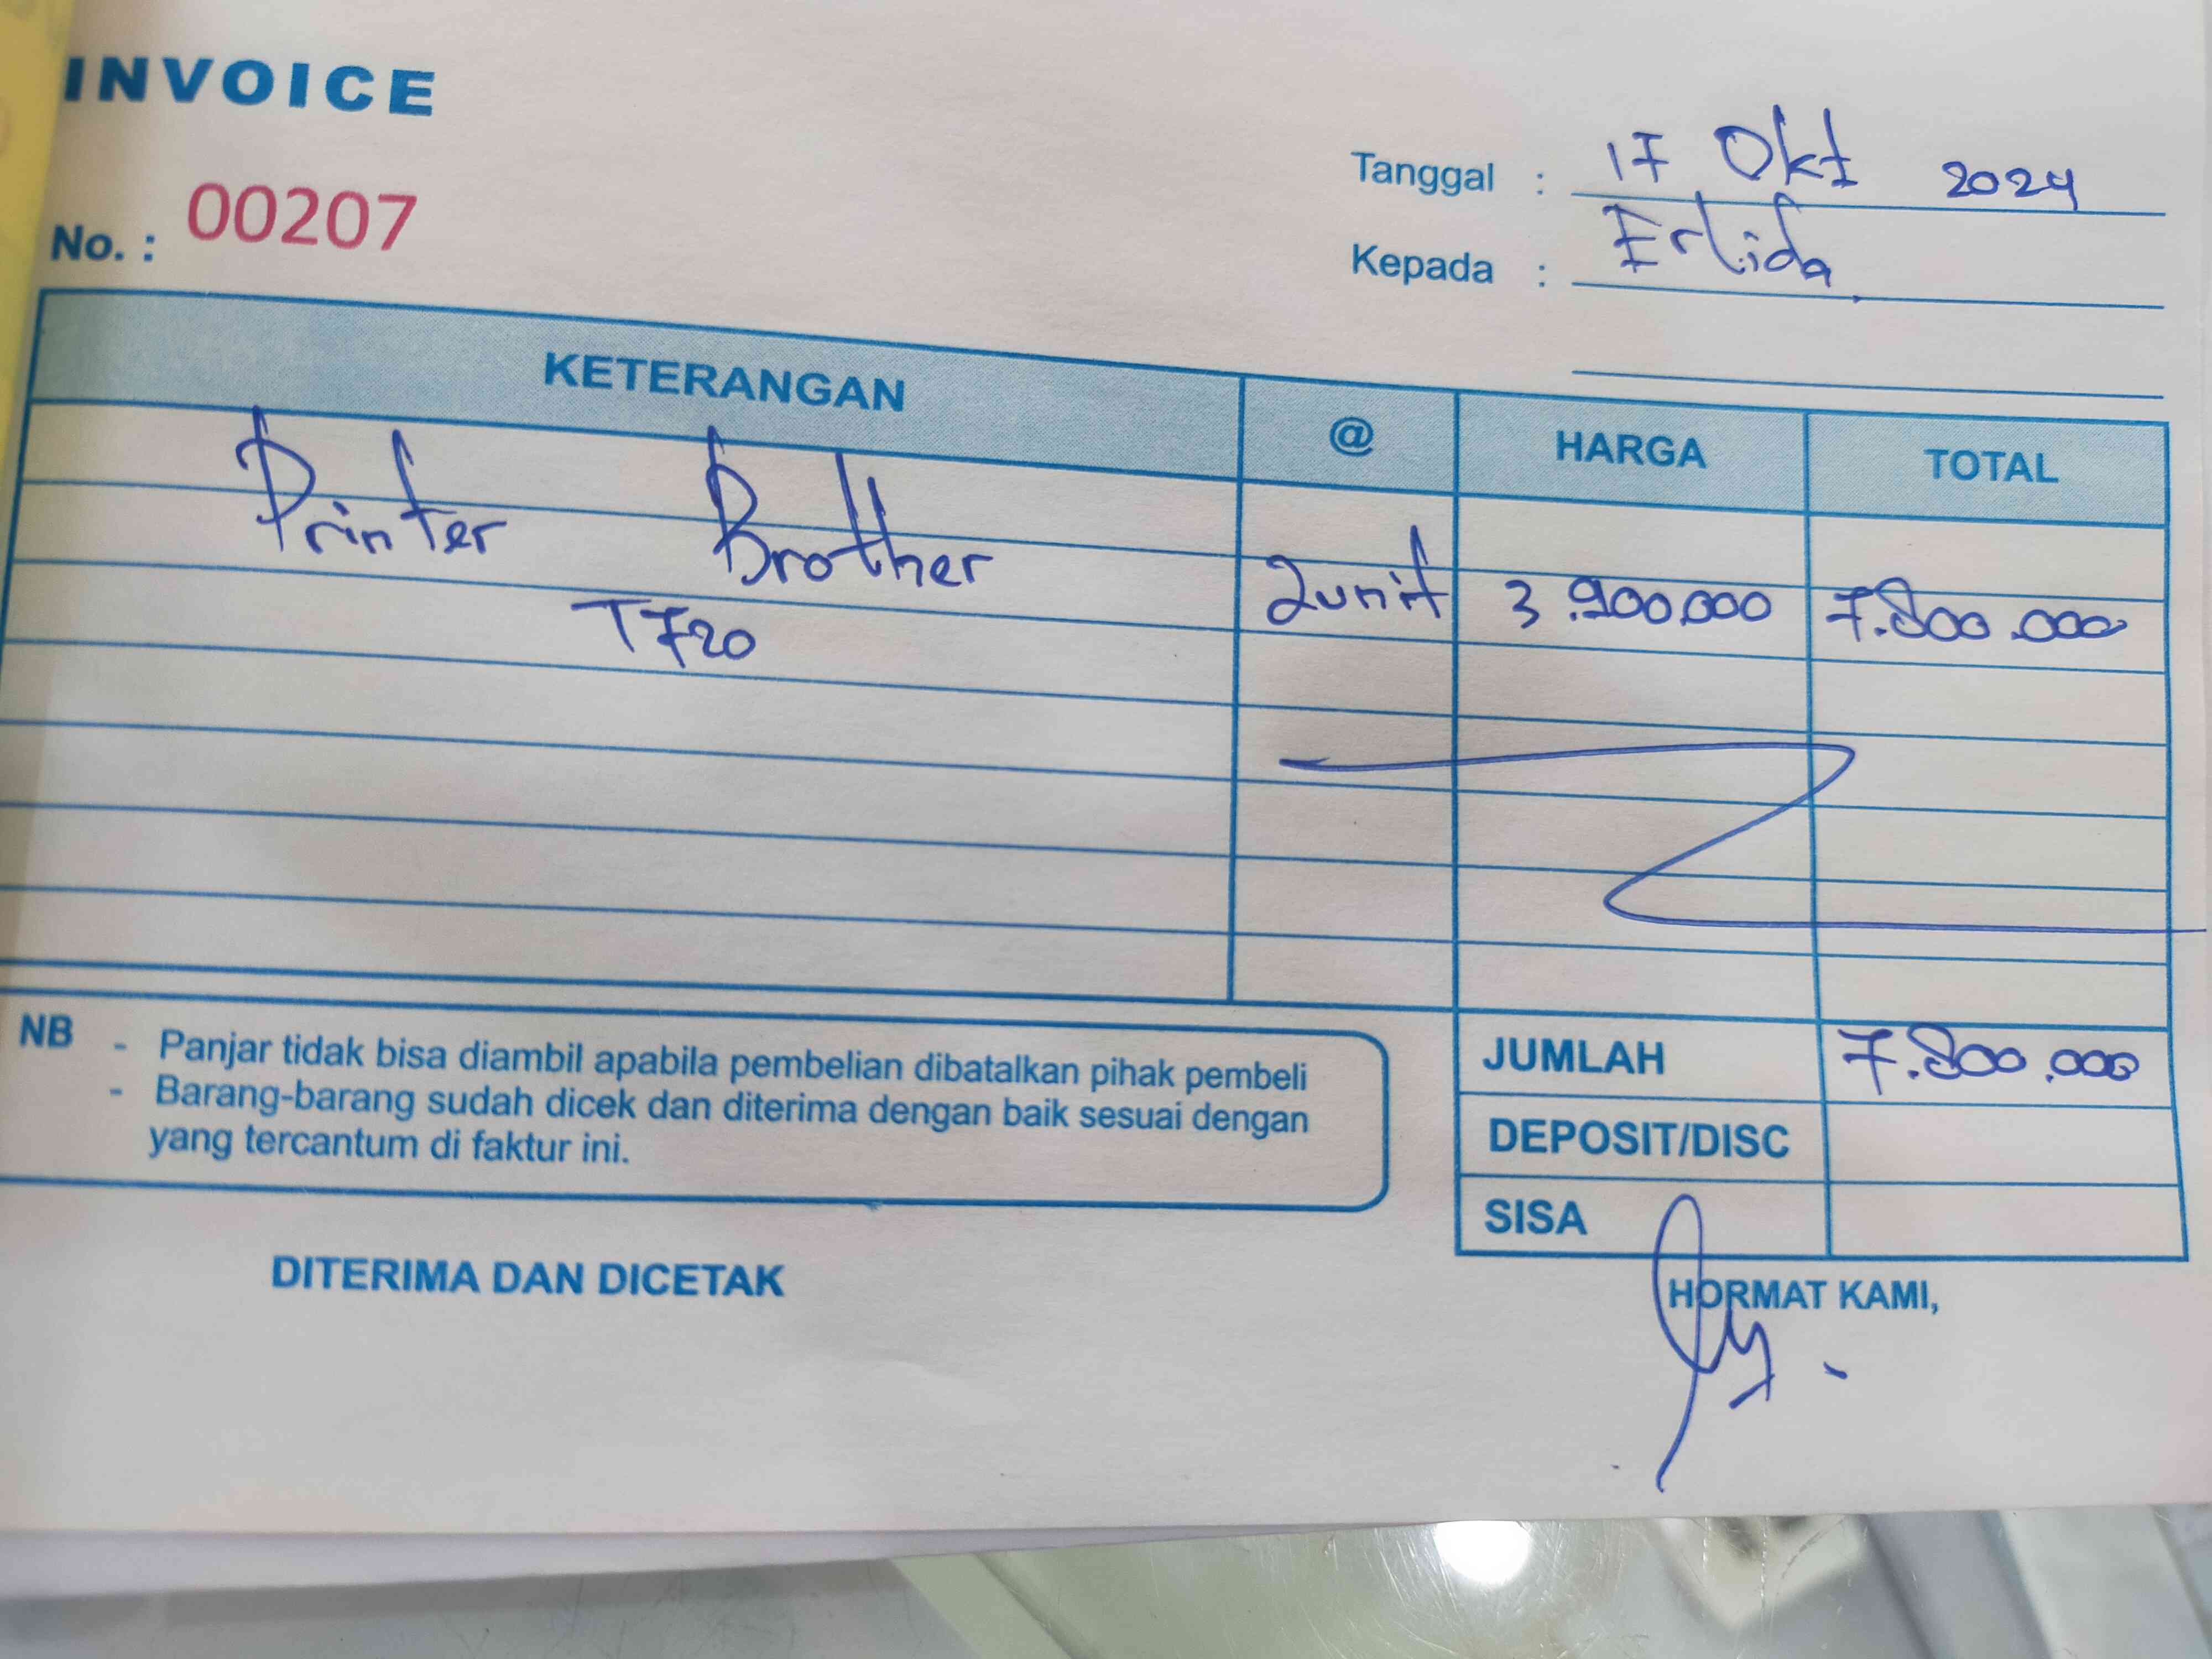 INVOICE
No. : 00207
Tanggal : 17 Okt 2024
Kepada : Erlida
KETERANGAN @ HARGA TOTAL
Printer Brother 2 unit 3.900.000 7.800.000
T720
NB - Panjar tidak bisa diambil apabila pembelian dibatalkan pihak pembeli
- Barang-barang sudah dicek dan diterima dengan baik sesuai dengan
yang tercantum di faktur ini.
JUMLAH 7.800.000
DEPOSIT/DISC
SISA
DITERIMA DAN DICETAK
HORMAT KAMI,